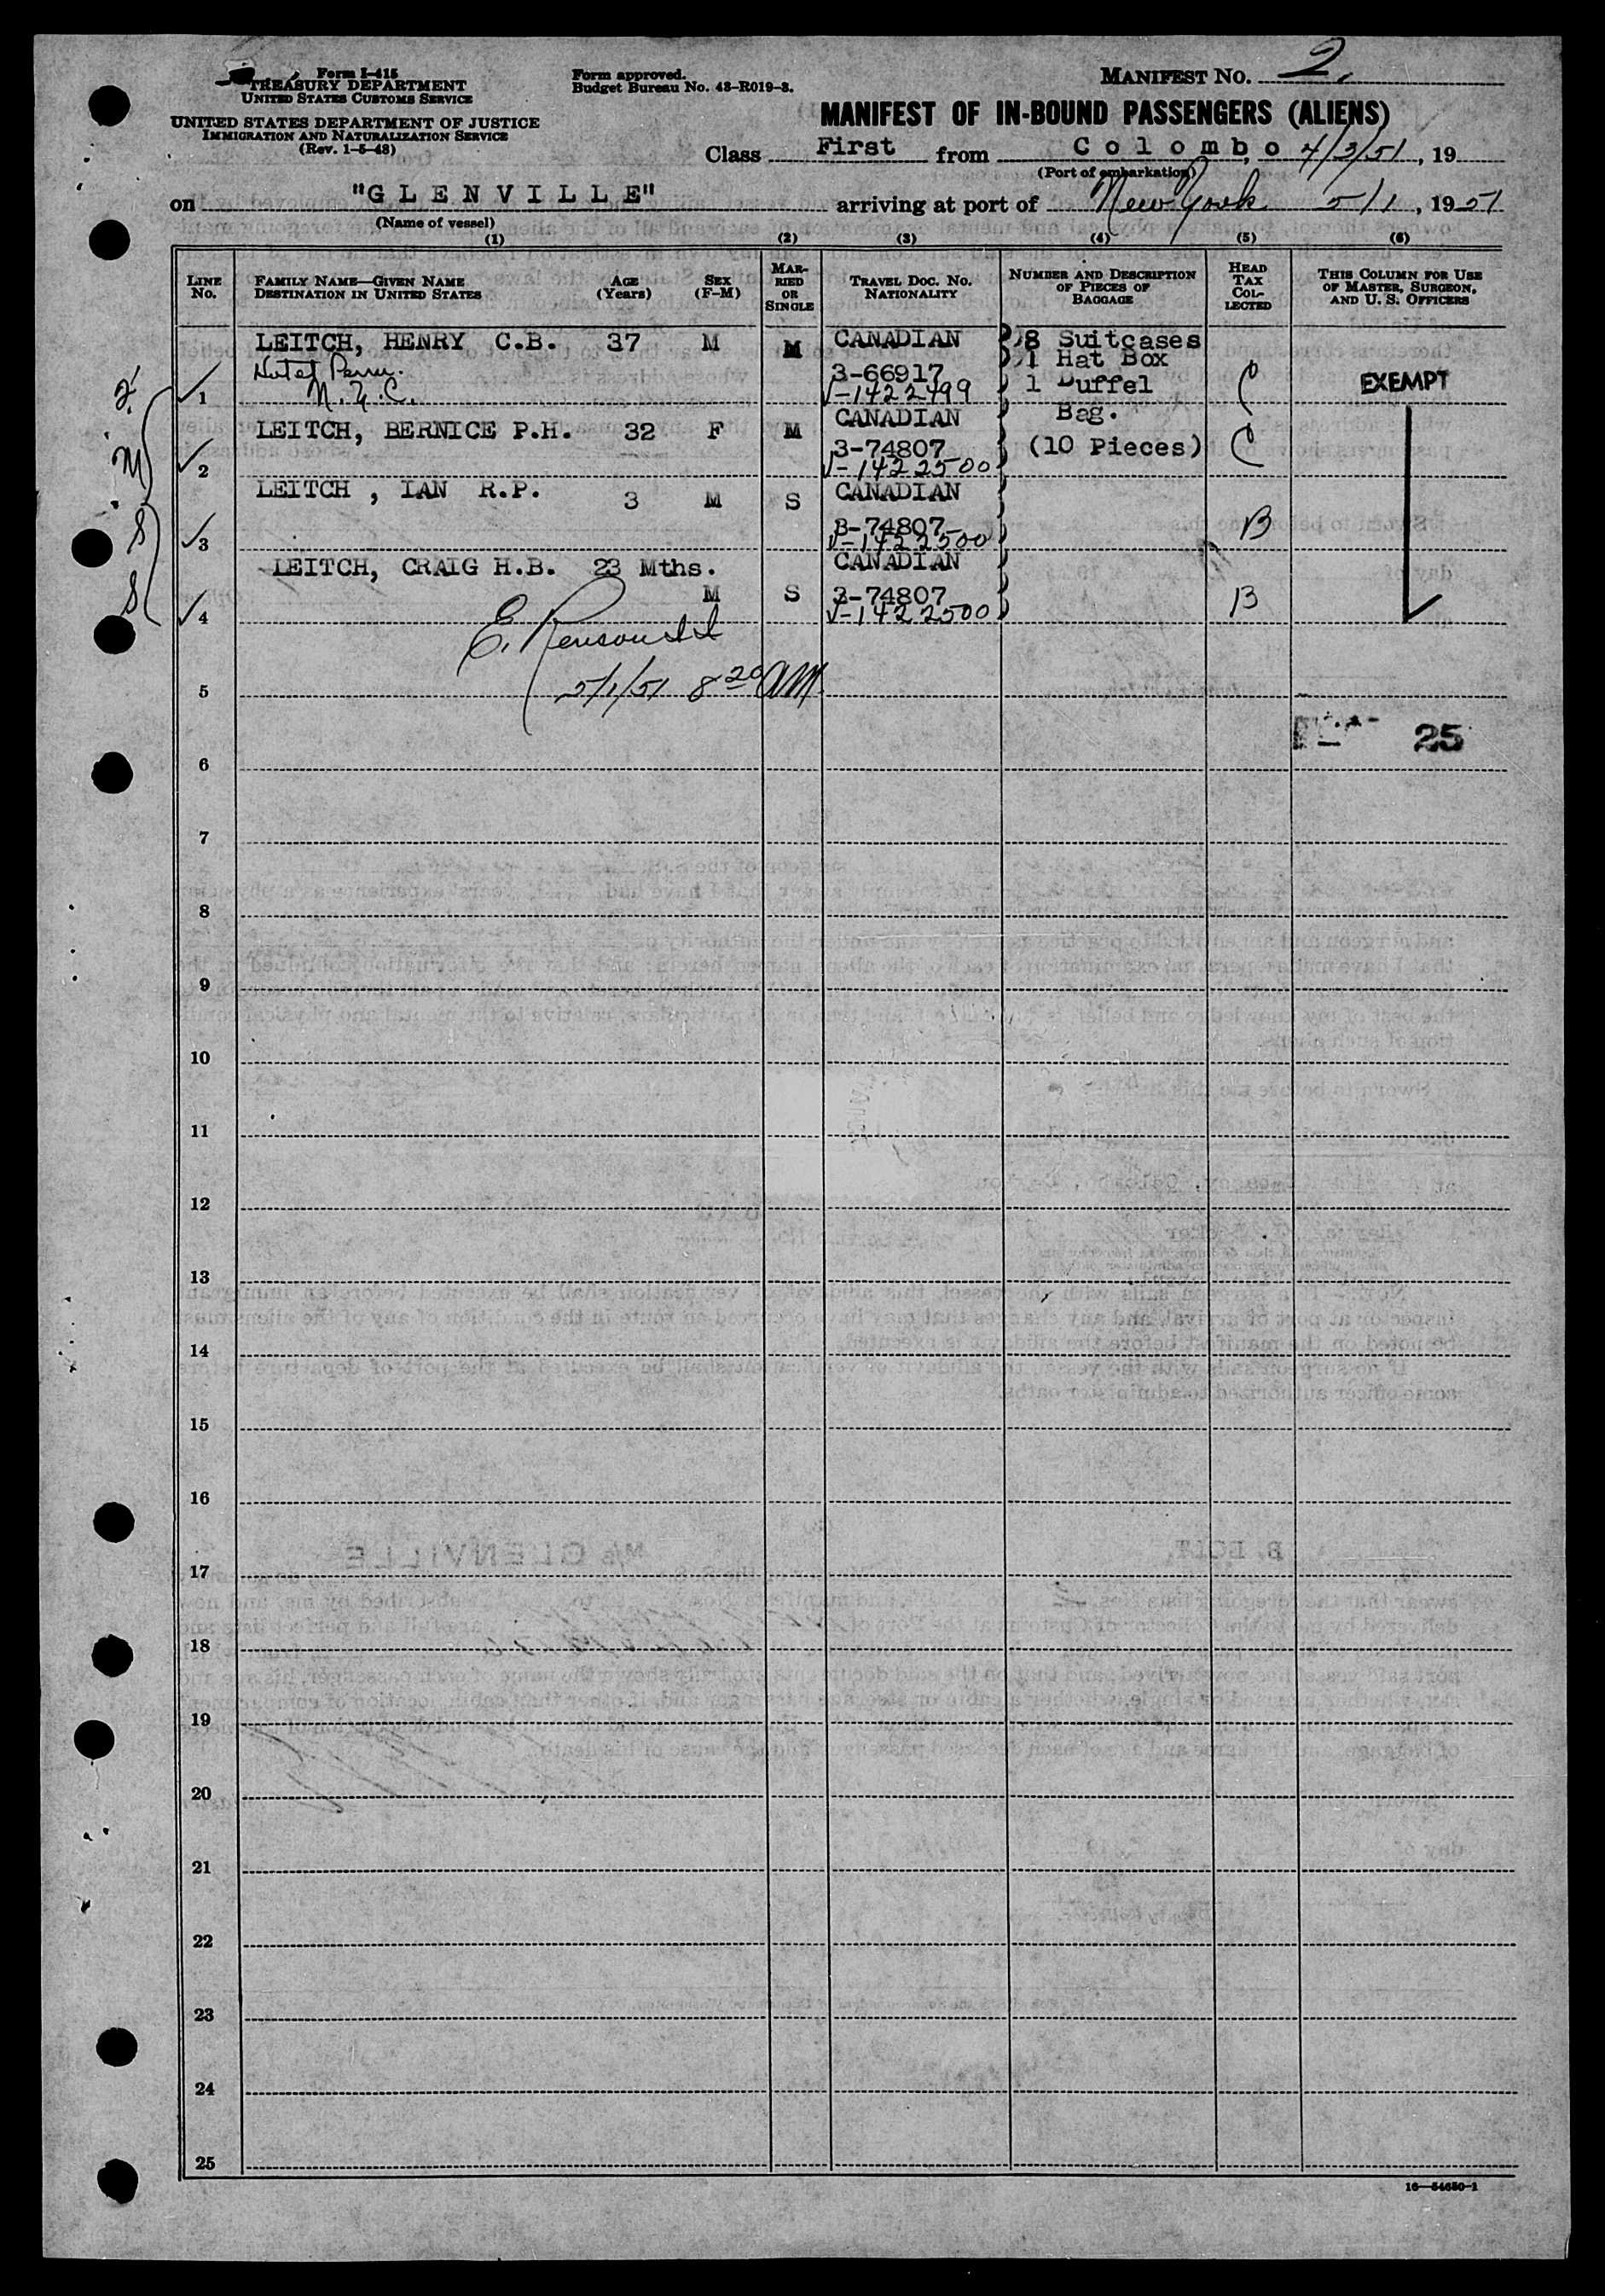 Form I-415
TREASURY DEPARTMENT
UNITED STATES CUSTOMS SERVICE
UNITED STATES DEPARTMENT OF JUSTICE
IMMIGRATION AND NATURALIZATION SERVICE
(Rev. 1-5-48)
Form approved.
Budget Bureau No. 43-R019-3.
MANIFEST NO. 2.
MANIFEST OF IN-BOUND PASSENGERS (ALIENS)
Class First from Colombo, 4/3/51, 19
(Port of embarkation)
on "GLENVILLE" arriving at port of New York 5/1, 1951
(Name of vessel)
(1) (2) (3) (4) (5) (6)
LINE No. FAMILY NAME—GIVEN NAME DESTINATION IN UNITED STATES AGE (Years) SEX (F-M) MARRIED OR SINGLE TRAVEL DOC. NO. NATIONALITY NUMBER AND DESCRIPTION OF PIECES OF BAGGAGE HEAD TAX COLLECTED THIS COLUMN FOR USE OF MASTER, SURGEON, AND U. S. OFFICERS
LEITCH, HENRY C.B. 37 M M CANADIAN 8 Suitcases
1 Hat Box
3-66917 1 Duffel
N.Y.C. EXEMPT
1 V-1422499
CANADIAN Bag.
LEITCH, BERNICE P.H. 32 F M
3-74807 (10 Pieces)
2 V-1422500
LEITCH, IAN R.P. 3 M S CANADIAN
3-74807 B
3 V-1422500
LEITCH, CRAIG H.B. 23 Mths. CANADIAN
M S 3-74807 B
4 V-1422500
E.
5/1/51 8 20 AM
5
25
6
7
8
9
10
11
12
13
14
15
16
17
18
19
20
21
22
23
24
25
16—54650-1